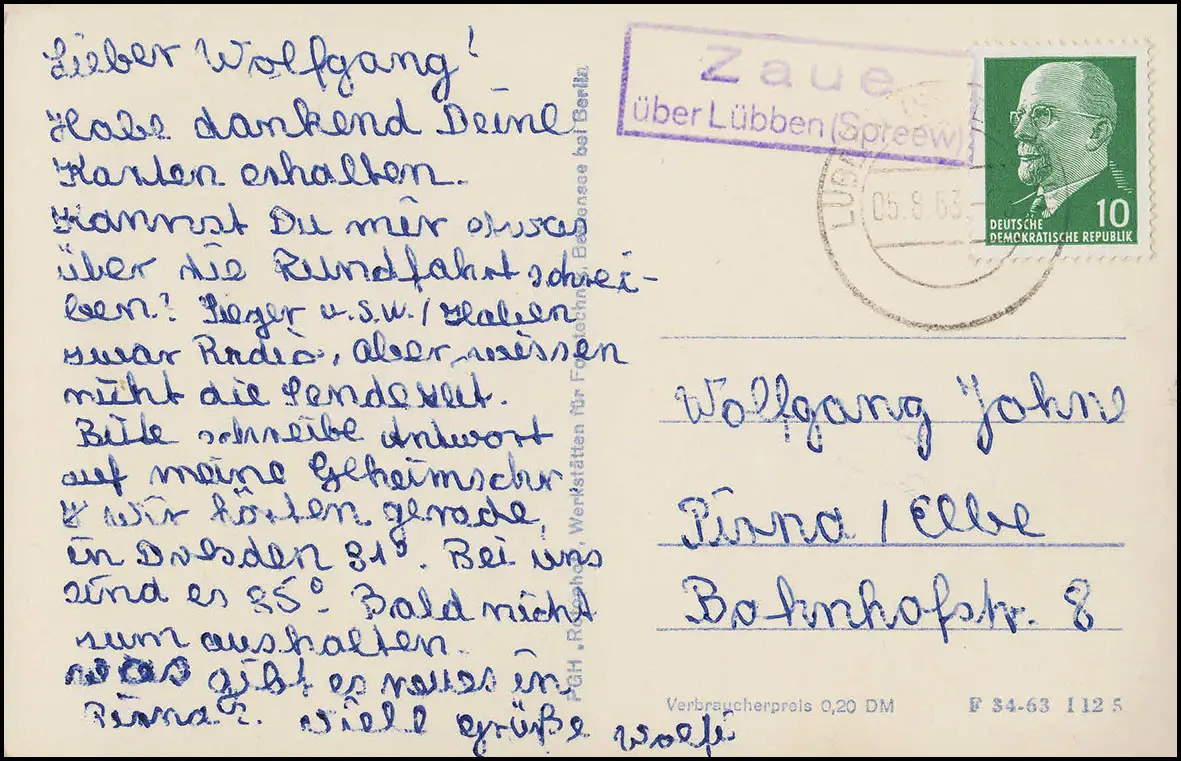 Lieber Wolfgang!
Habe dankend Deine
Karten erhalten.
Kannst Du mir etwas
über die Rundfahrt schrei-
ben? Sieger u.s.w./Haben
zwar Radio, aber wissen
nicht die Sendezeit.
Bitte schreibe Antwort
auf meine Geheimschr
wir hörten gerade,
in Dresden 31°. Bei uns
sind es 35°. Bald nicht
zum aushalten.
was gibt es neues in
Pirna?. Viele grüße Wolfi
PGH, Werkstätten für Fototechnik, Berlin
Zaue
über Lübben (Spreew)
LÜBB
05.8.63
DEUTSCHE
DEMOKRATISCHE REPUBLIK
10
Wolfgang John
Pirna / Elbe
Bahnhofstr. 8
Verbraucherpreis 0,20 DM F 34-63 I 12 5